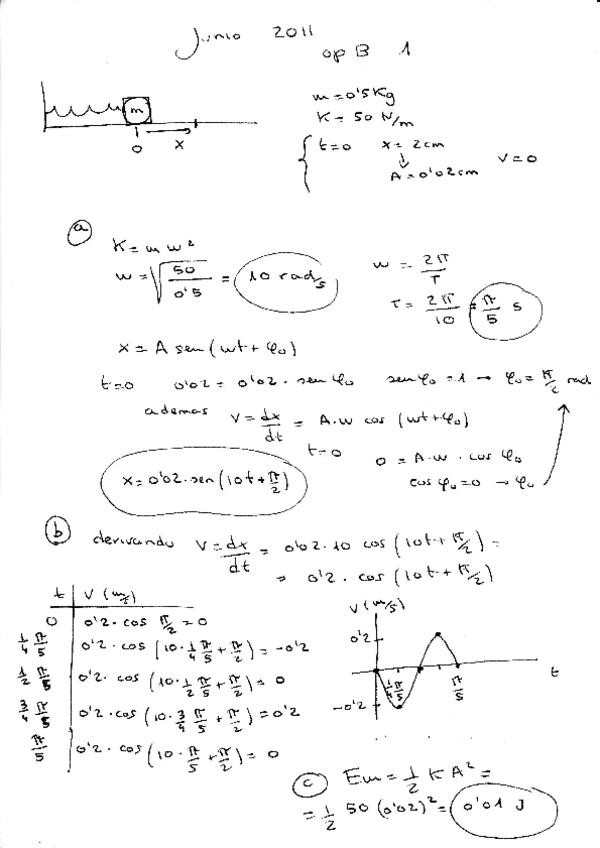 Junio 2011
op B 1
m
0 x
m = 0'5 Kg
K = 50 N/m
t=0 x = 2cm v=0
↓
A = 0'02 cm
a
K = m w²
w = √(50/0'5) = 10 rad/s
w = 2π/T
T = 2π/10 = π/5 s
x = A sen (wt + φ₀)
t=0 0'02 = 0'02 · sen φ₀ sen φ₀ = 1 → φ₀ = π/2 rad
ademas v = dx/dt = A·w cos (wt+φ₀)
t=0 0 = A·w · cos φ₀
cos φ₀ = 0 → φ₀
x = 0'02 · sen (10t + π/2)
b
derivando v = dx/dt = 0'02 · 10 cos (10t + π/2) =
= 0'2 · cos (10t + π/2)
t v (m/s)
0 0'2 · cos π/2 = 0
1/4 π/5 0'2 · cos (10 · 1/4 π/5 + π/2) = -0'2
1/2 π/5 0'2 · cos (10 · 1/2 π/5 + π/2) = 0
3/4 π/5 0'2 · cos (10 · 3/4 π/5 + π/2) = 0'2
π/5 0'2 · cos (10 · π/5 + π/2) = 0
v (m/s)
0'2
1/4 π/5 π/5 t
-0'2
c Em = 1/2 K A² =
= 1/2 50 (0'02)² = 0'01 J